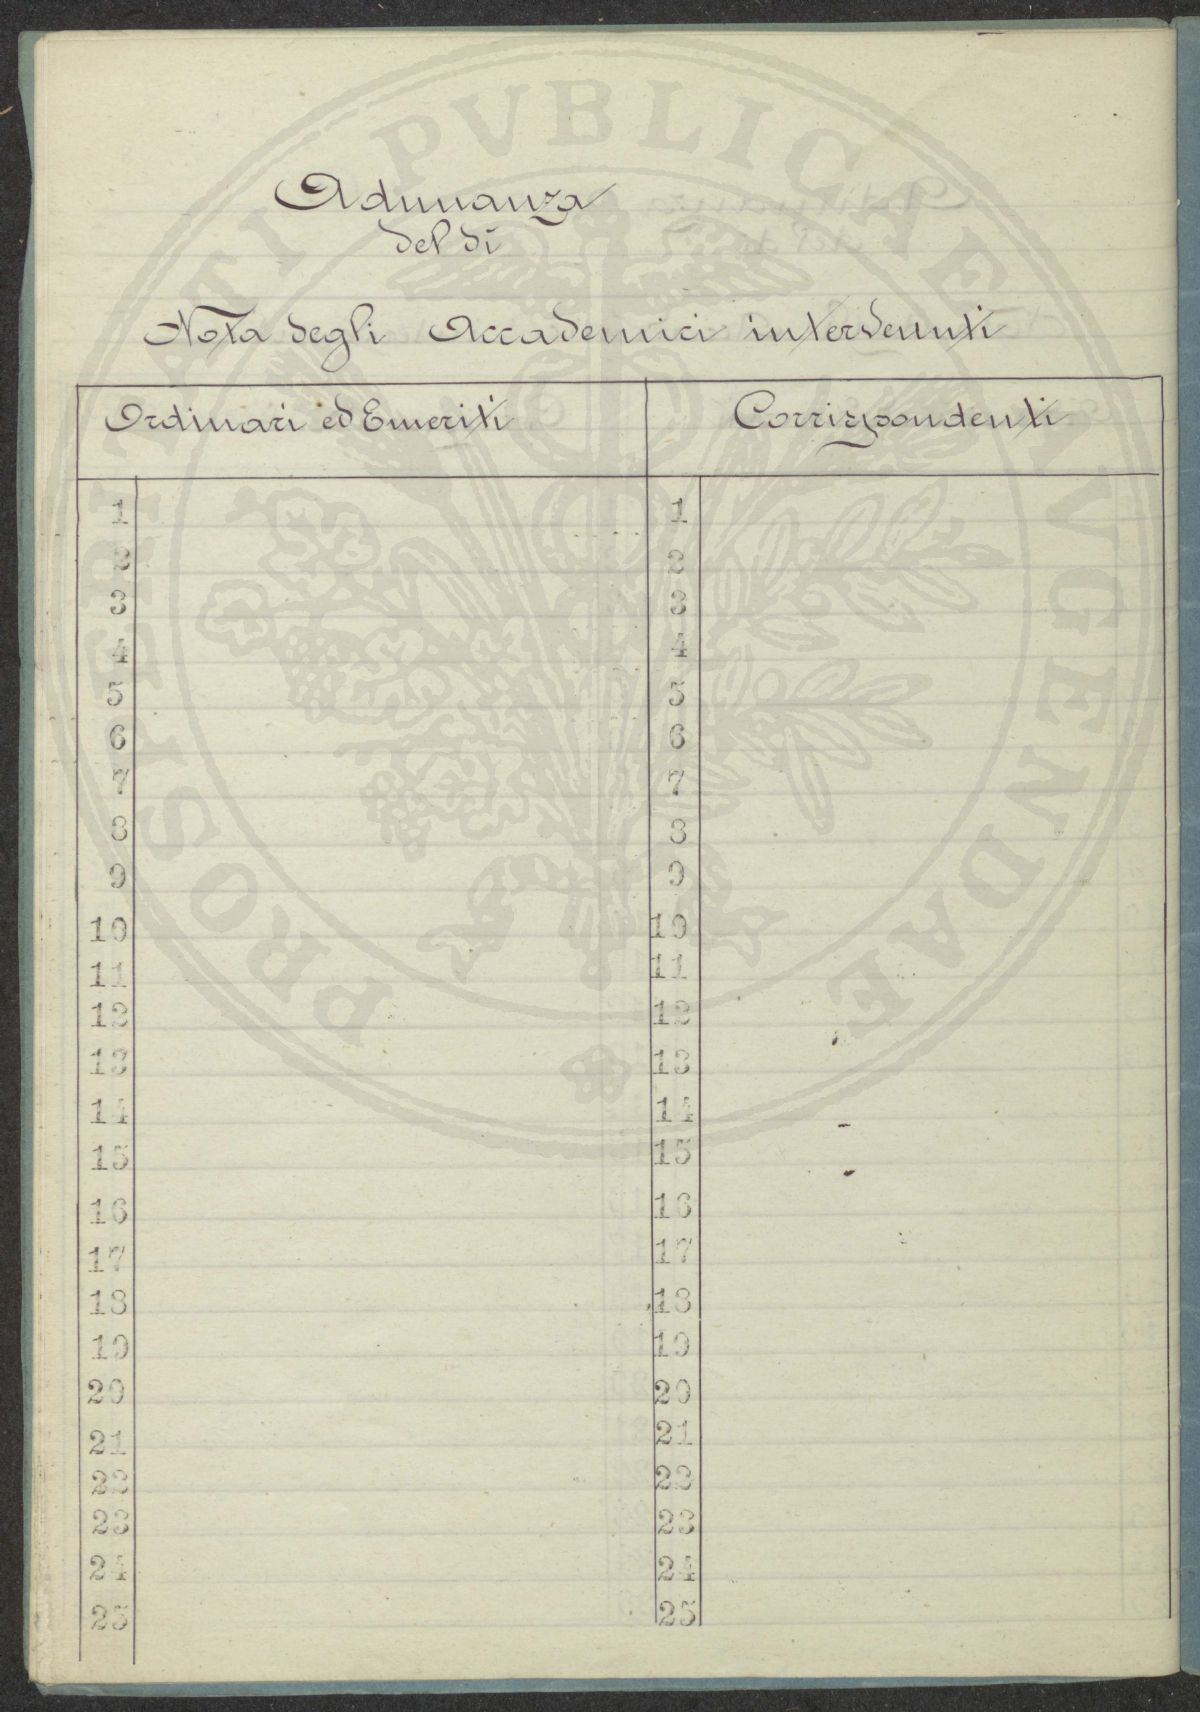 Adunanza
del dì
Nota degli Accademici intervenuti
Ordinari ed Emeriti Corrispondenti
1 1
2 2
3 3
4 4
5 5
6 6
7 7
8 8
9 9
10 10
11 11
12 12
13 13
14 14
15 15
16 16
17 17
18 18
19 19
20 20
21 21
22 22
23 23
24 24
25 25
PROSPERITATI PVBLICAE AVGENDAE